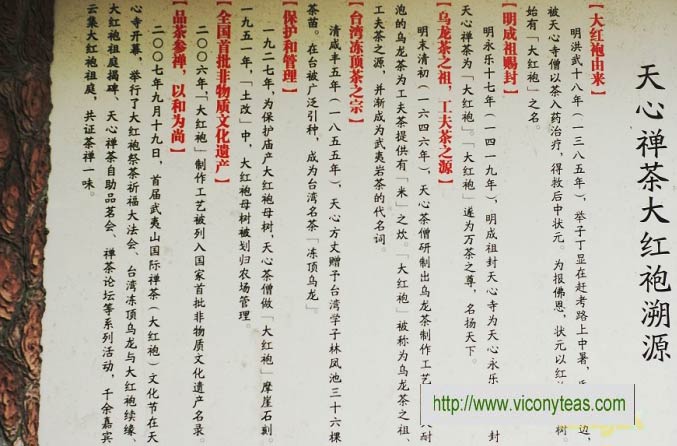 天心禅茶大红袍溯源
【大红袍由来】
明洪武十八年（一三八五年），举子丁显在赶考路上中暑，
边，
被天心寺僧以茶入药治疗，得救后中状元。为报佛恩，状元以红
树
始有「大红袍」之名。
【明成祖赐封】
明永乐十七年（一四一九年），明成祖封天心寺为天心永乐
封
天心禅茶为「大红袍」。「大红袍」遂为万茶之尊，名扬天下。
【乌龙茶之祖，工夫茶之源】
明末清初（一六四六年），天心茶僧研制出乌龙茶制作工艺
耐
泡的乌龙茶为工夫茶提供有「米」之炊。「大红袍」被称为乌龙茶之祖、
工夫茶之源，并渐成为武夷岩茶的代名词。
【台湾冻顶茶之宗】
清咸丰五年（一八五五年），天心方丈赠予台湾学子林凤池三十六棵
茶苗。在台被广泛引种，成为台湾名茶「冻顶乌龙」。
【保护和管理】
一九二七年，为保护庙产大红袍母树，天心茶僧做「大红袍」摩崖石刻。
一九五一年，「土改」中，大红袍母树被划归农场管理。
【全国首批非物质文化遗产】
二〇〇六年，「大红袍」制作工艺被列入国家首批非物质文化遗产名录。
【品茶参禅，以和为尚】
二〇〇七年九月十九日，首届武夷山国际禅茶（大红袍）文化节在天
心寺开幕，举行了大红袍祭茶祈福大法会、台湾冻顶乌龙与大红袍续缘、
大红袍祖庭揭碑、天心禅茶自助品茗会、禅茶论坛等系列活动，千余嘉宾
云集大红袍祖庭，共证茶禅一味。
http://www.viconyteas.com/